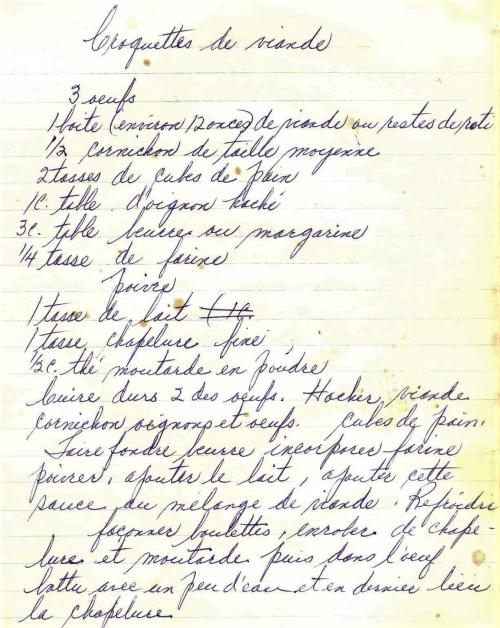 Croquettes de viande
3 oeufs
1 boite (environ 12 onces) de viande ou restes de roti
1/2 cornichon de taille moyenne
2 tasses de cubes de pain
1 c. table d'oignon haché
3 c. table beurre ou margarine
1/4 tasse de farine
poivre
1 tasse de lait (1 c.
1 tasse chapelure fine
1/2 c. thé moutarde en poudre
Cuire durs 2 des oeufs. Hacher viande
cornichon oignons et oeufs. Cubes de pain.
Faire fondre beurre incorporer farine
poivrer, ajouter le lait, ajouter cette
sauce au mélange de viande. Refroidir
façonner boulettes, enrober de chape-
lure et moutarde puis dans l'oeuf
battu avec un peu d'eau et en dernier lieu
la chapelure